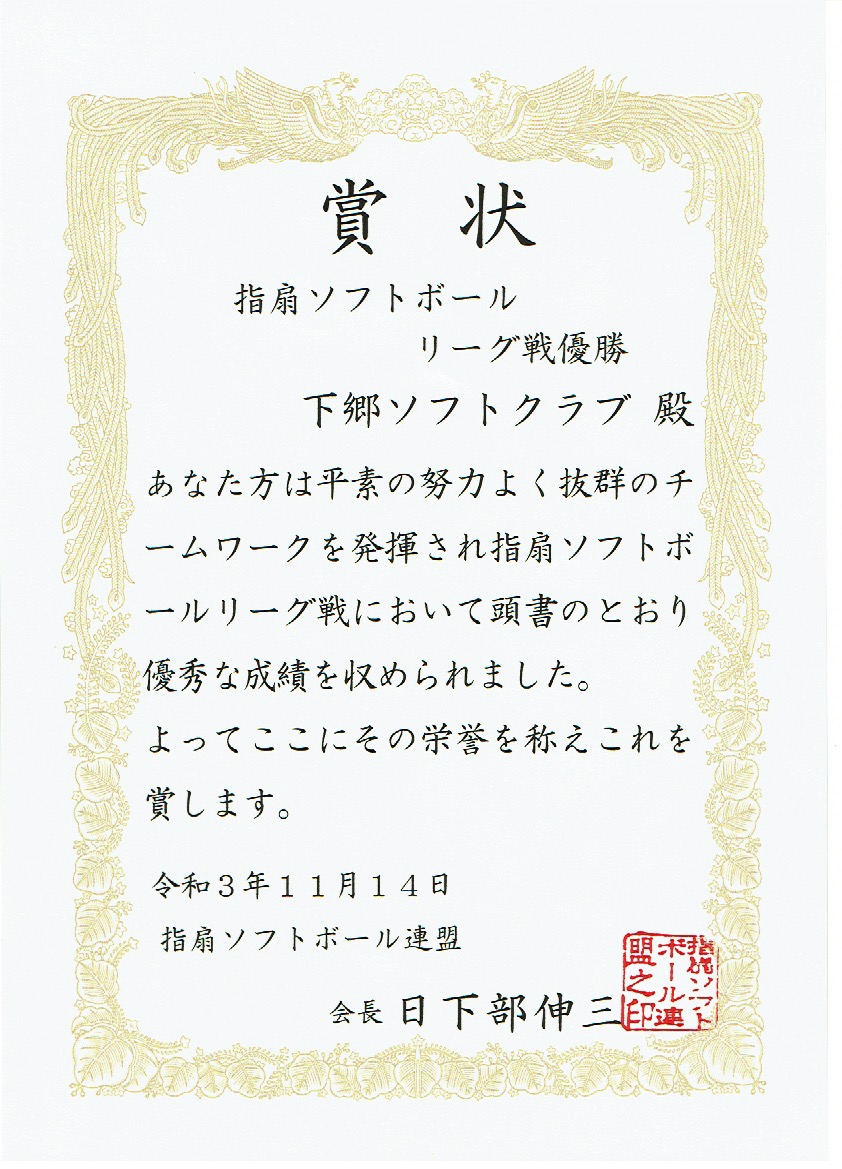 賞 状
指扇ソフトボール
リーグ戦優勝
下郷ソフトクラブ 殿
あなた方は平素の努力よく抜群のチ
ームワークを発揮され指扇ソフトボ
ールリーグ戦において頭書のとおり
優秀な成績を収められました。
よってここにその栄誉を称えこれを
賞します。
令和３年１１月１４日
指扇ソフトボール連盟
会長 日下部伸三
指扇ソフト
ボール連
盟之印